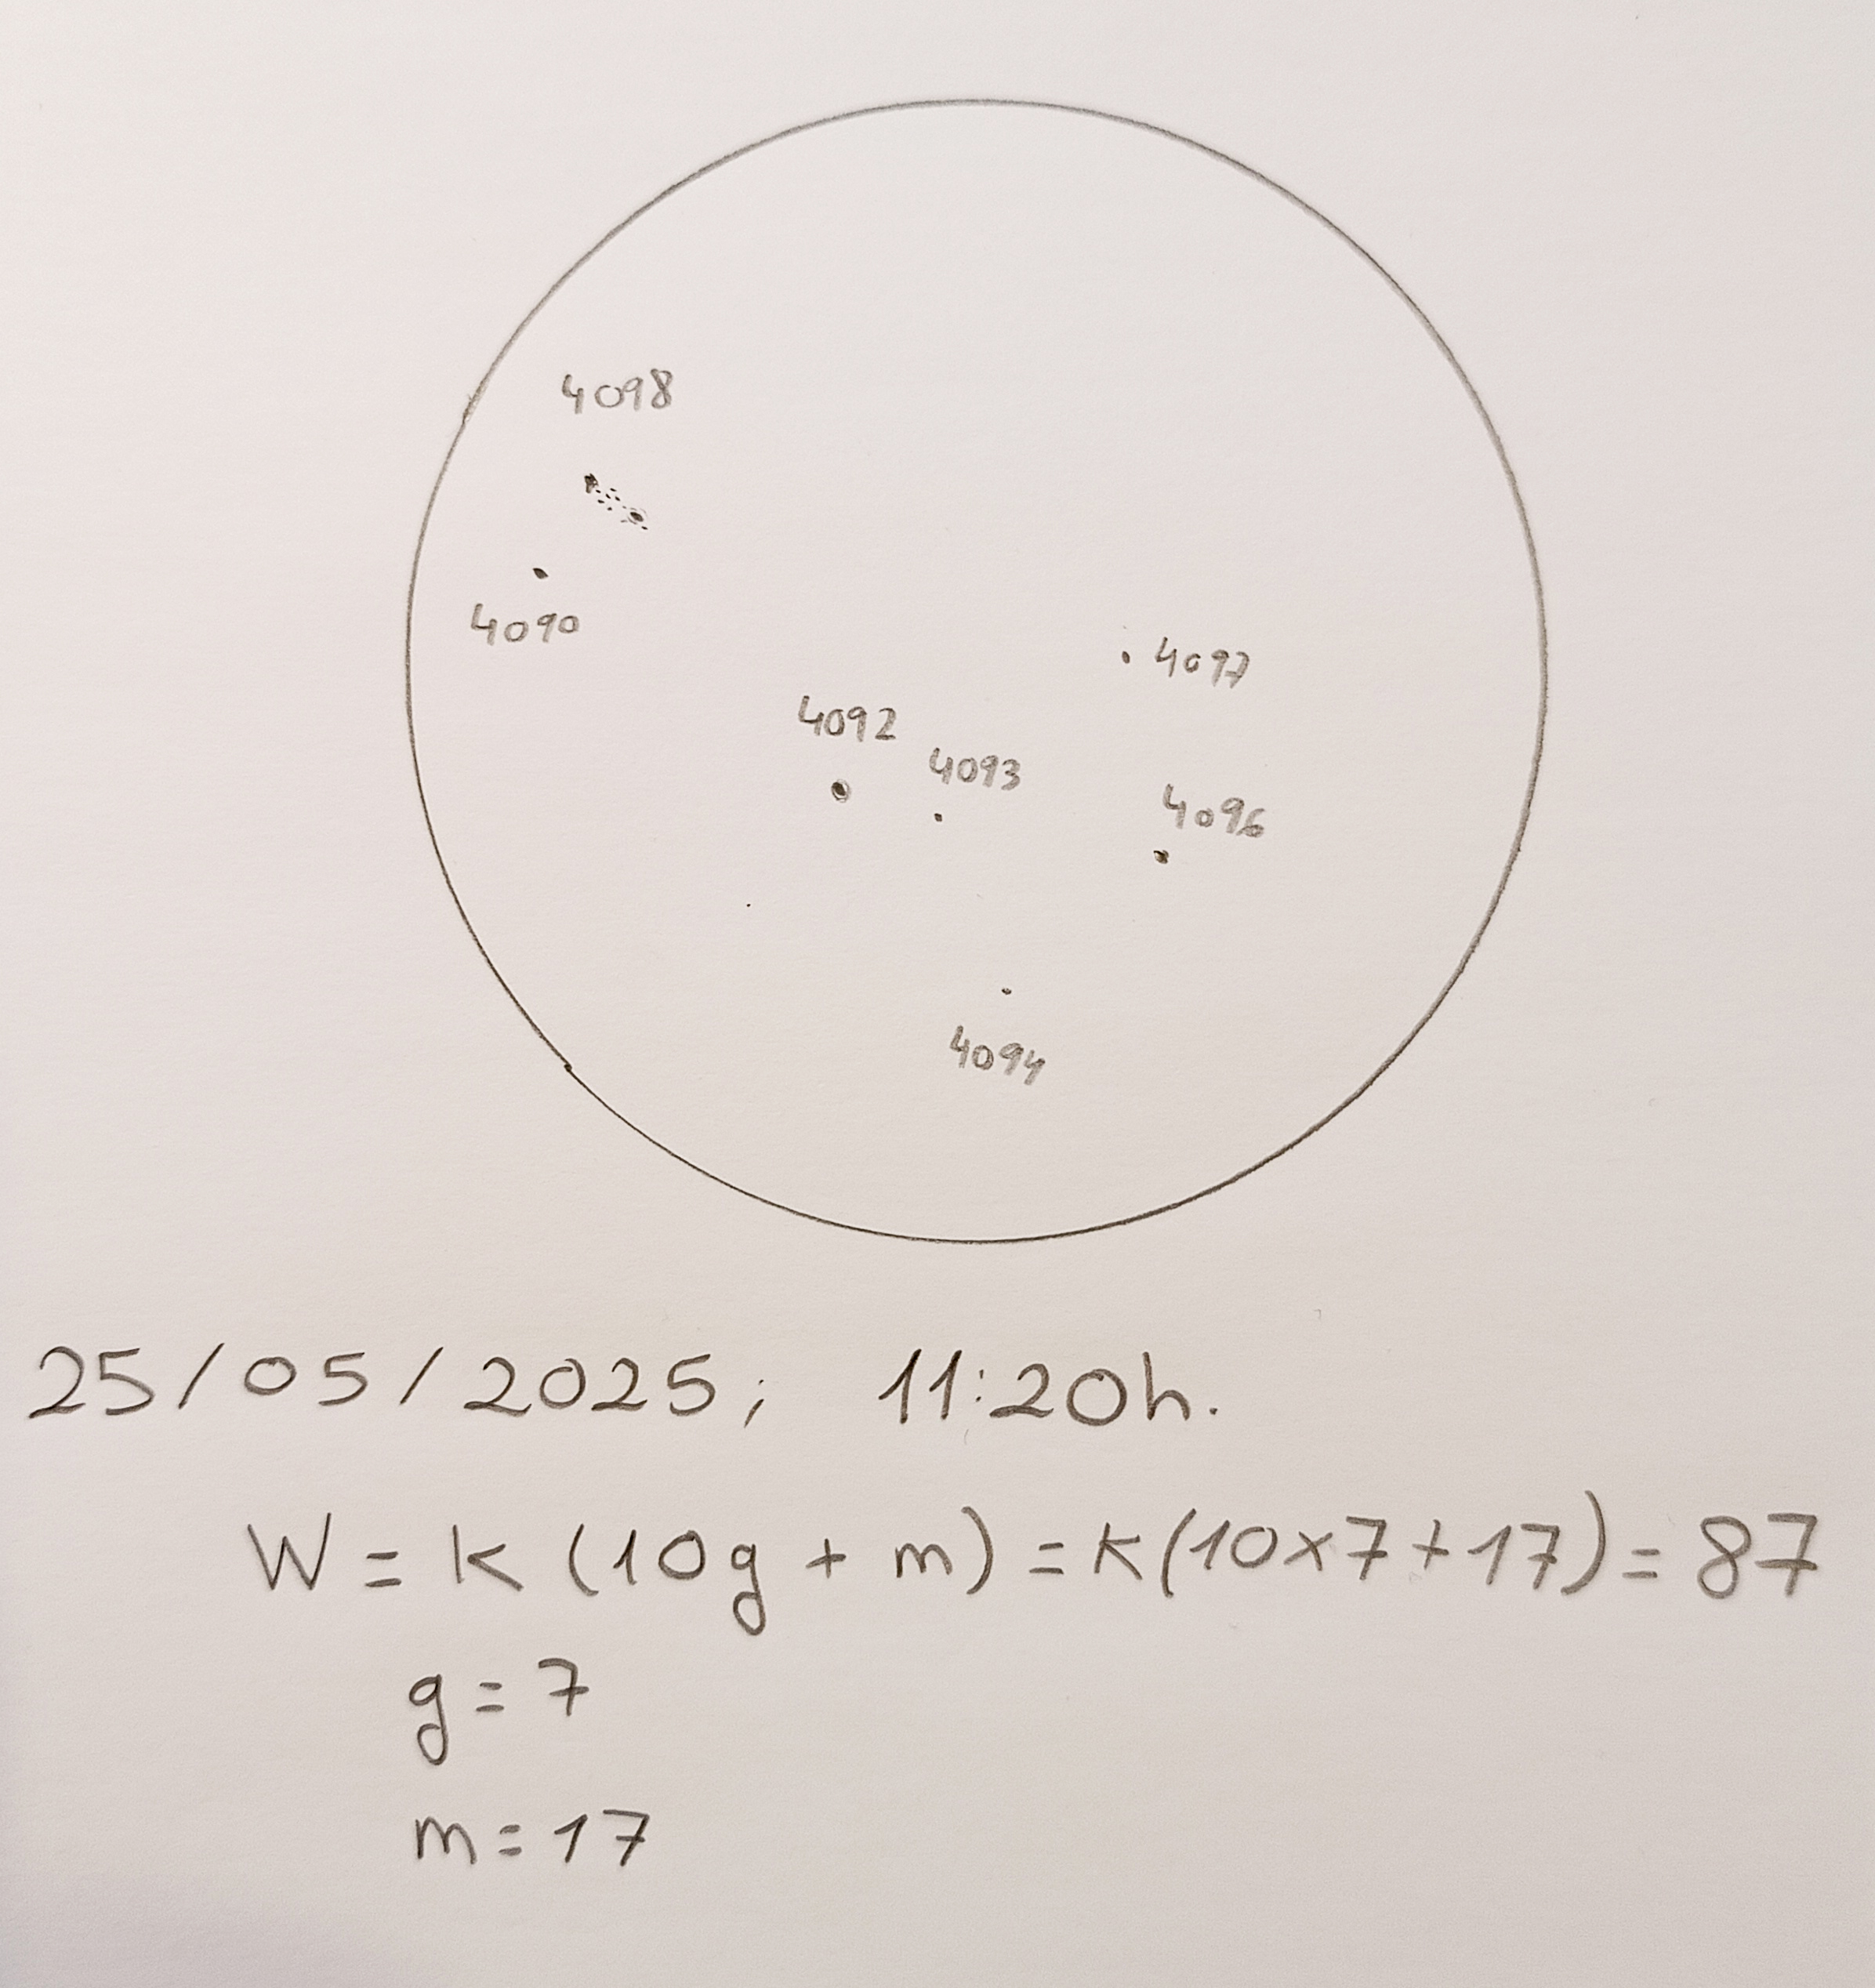 4098
4090
4097
4092
4093
4096
4094
25/05/2025; 11:20h.
W = K (10g + m) = K(10x7+17) = 87
g = 7
m = 17